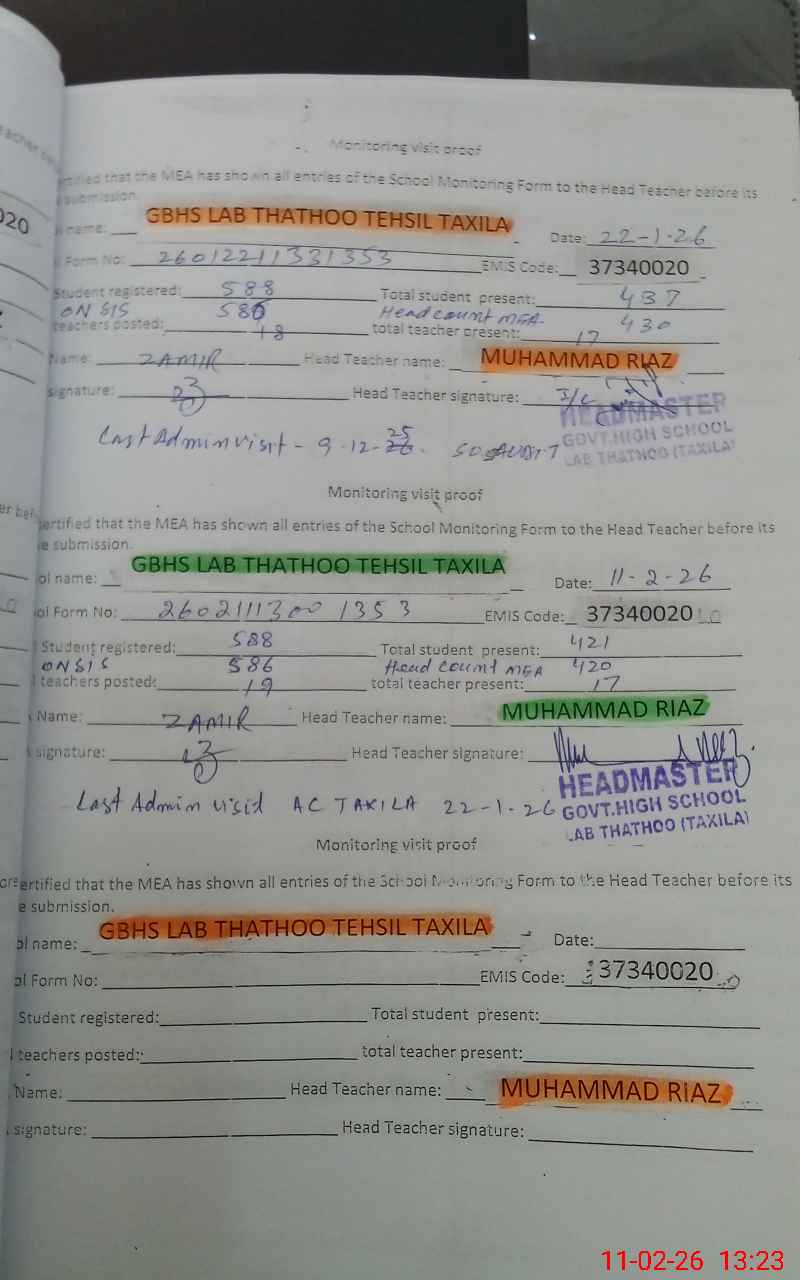 eacher
020
Monitoring visit proof
ertified that the MEA has shown all entries of the School Monitoring Form to the Head Teacher before its
submission.
l name: GBHS LAB THATHOO TEHSIL TAXILA Date: 22-1-26
l Form No: 26012211331353 EMIS Code: 37340020
Student registered: 588 Total student present: 437
ON SIS 586 Head count MEA 430
teachers posted: 18 total teacher present: 17
Name: ZAMIR Head Teacher name: MUHAMMAD RIAZ
signature: Head Teacher signature: I/C
HEADMASTER
GOVT.HIGH SCHOOL
LAB THATHOO (TAXILA)
Last Admin visit - 9-12-25
Monitoring visit proof
ertified that the MEA has shown all entries of the School Monitoring Form to the Head Teacher before its
e submission.
ol name: GBHS LAB THATHOO TEHSIL TAXILA Date: 11-2-26
ol Form No: 26021113001353 EMIS Code: 37340020
Student registered: 588 Total student present: 421
ON SIS 586 Head count MEA 420
teachers posted: 19 total teacher present: 17
Name: ZAMIR Head Teacher name: MUHAMMAD RIAZ
signature: Head Teacher signature:
HEADMASTER
GOVT.HIGH SCHOOL
LAB THATHOO (TAXILA)
Last Admin visid AC TAXILA 22-1-26
Monitoring visit proof
ertified that the MEA has shown all entries of the School Monitoring Form to the Head Teacher before its
e submission.
ol name: GBHS LAB THATHOO TEHSIL TAXILA Date:
ol Form No: EMIS Code: 37340020
Student registered: Total student present:
l teachers posted: total teacher present:
Name: Head Teacher name: MUHAMMAD RIAZ
signature: Head Teacher signature:
11-02-26 13:23